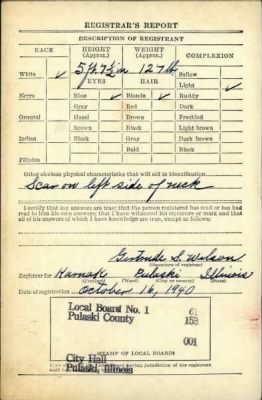 REGISTRAR'S REPORT
DESCRIPTION OF REGISTRANT
RACE HEIGHT (Approx.) WEIGHT (Approx.) COMPLEXION
White ✓ 5 ft. 7½ in 127 lb. Sallow
EYES HAIR Light ✓
Negro Blue ✓ Blonde ✓ Ruddy
Gray Red Dark
Oriental Hazel Brown Freckled
Brown Black Light brown
Indian Black Gray Dark brown
Bald Black
Filipino
Other obvious physical characteristics that will aid in identification
Scar on left side of neck
I certify that my answers are true; that the person registered has read or has had
read to him his own answers; that I have witnessed his signature or mark and that
all of his answers of which I have knowledge are true, except as follows:
Gertrude S. Wilson
(Signature of registrar)
Registrar for Karnak Pulaski Illinois
(Precinct) (Ward) (City or county) (State)
Date of registration October 16, 1940
Local Board No. 1 61
Pulaski County 153
001
City Hall
Pulaski, Illinois
STAMP OF LOCAL BOARD